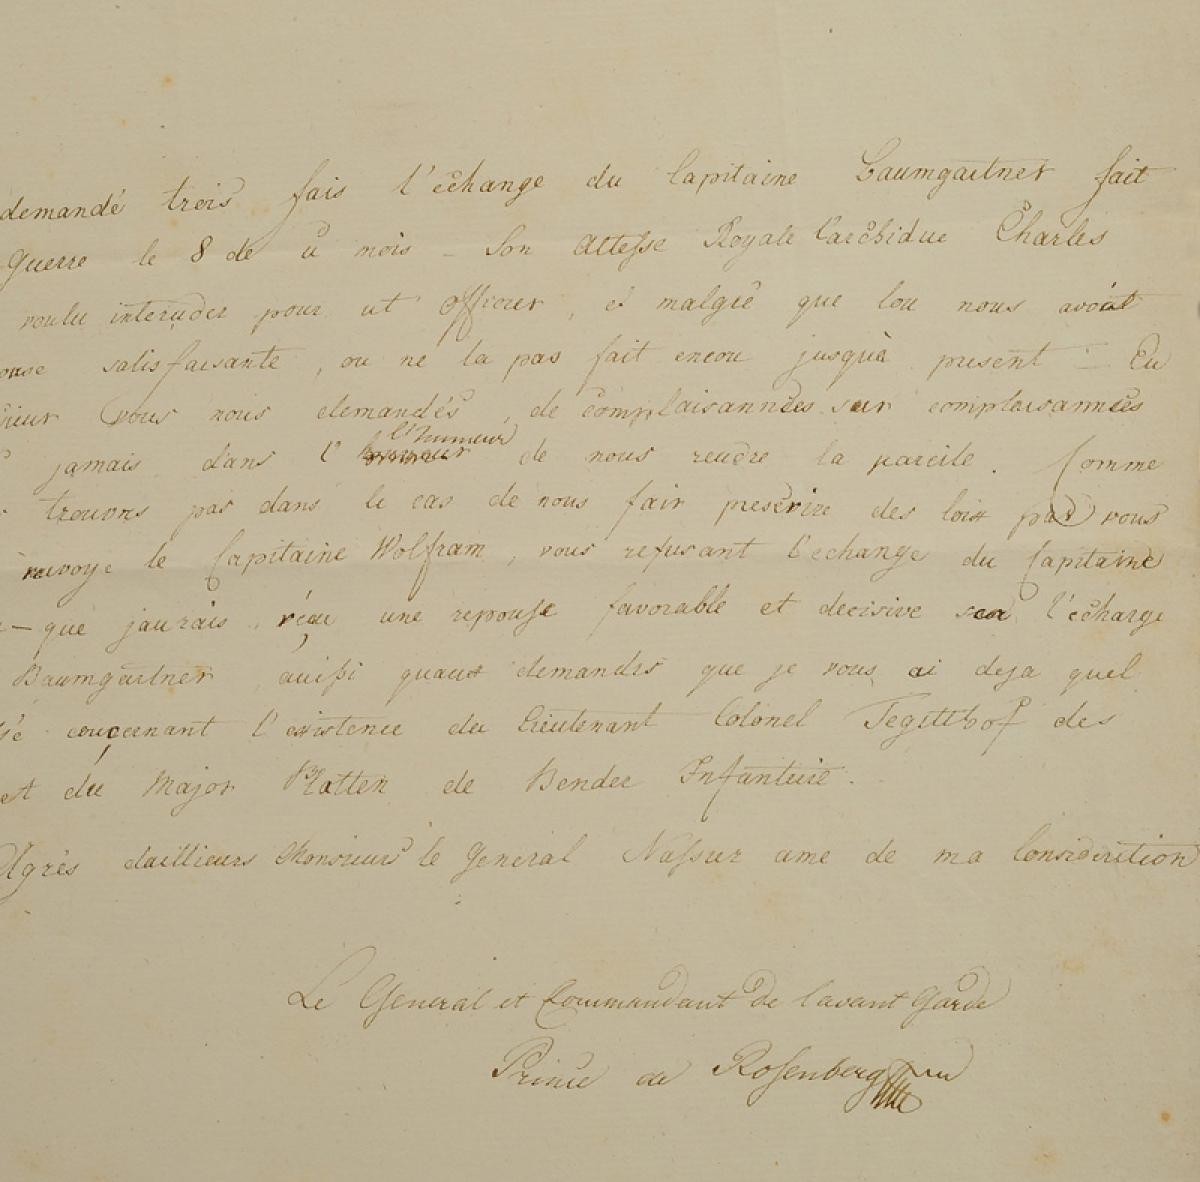 demandé trois fais l'échange du Capitaine Baumgartner fait
Guerre le 8 de ü mois - Son Altesse Royale l'archiduc Charles
voulu interceder pour ut Officier, et malgré que lou nous avoit
satisfaisante, ou ne la pas fait encou jusquà present - Eu
vous nous demandés, de complaisannées sur complaisannées
jamais dans l' l'humeur de nous rendre la pareile. Comme
trouvons pas dans le cas de nous fair prescrire des lois par vous
renvoye le Capitaine Wolfram, vous refusant l'echange du Capitaine
- que jaurais réçu une reponse favorable et decisive sur l'échange
Baumgartner, aussi quant demandes que je vous ai deja quel
conçernant l'existence du Lieutenant Colonel Tegetthof des
et du Major Platten de Bender Infanterie.
Agrés daillieurs Monsieur le General Nassur ame de ma Consideration
Le General et Commandant de lavant Garde
Prince de Rosenberg